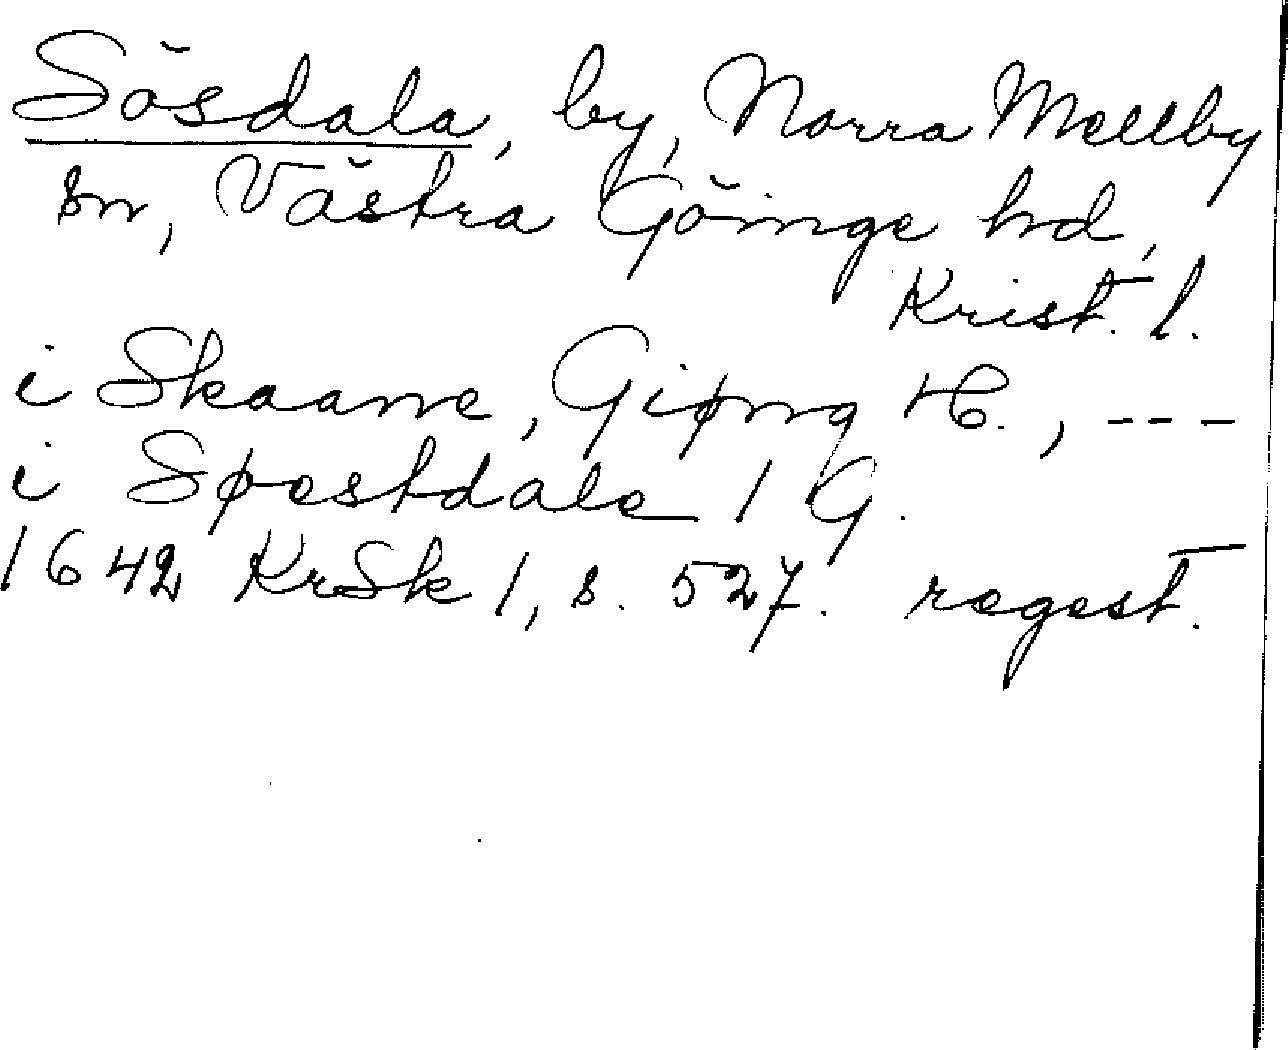 Sösdala, by, Norra Mellby
sn, Västra Göinge hd,
Krist. l.
i Skaane, Giøng H., ---
i Spestdale 1 G.
1642 KrSk 1, s. 527. regest.